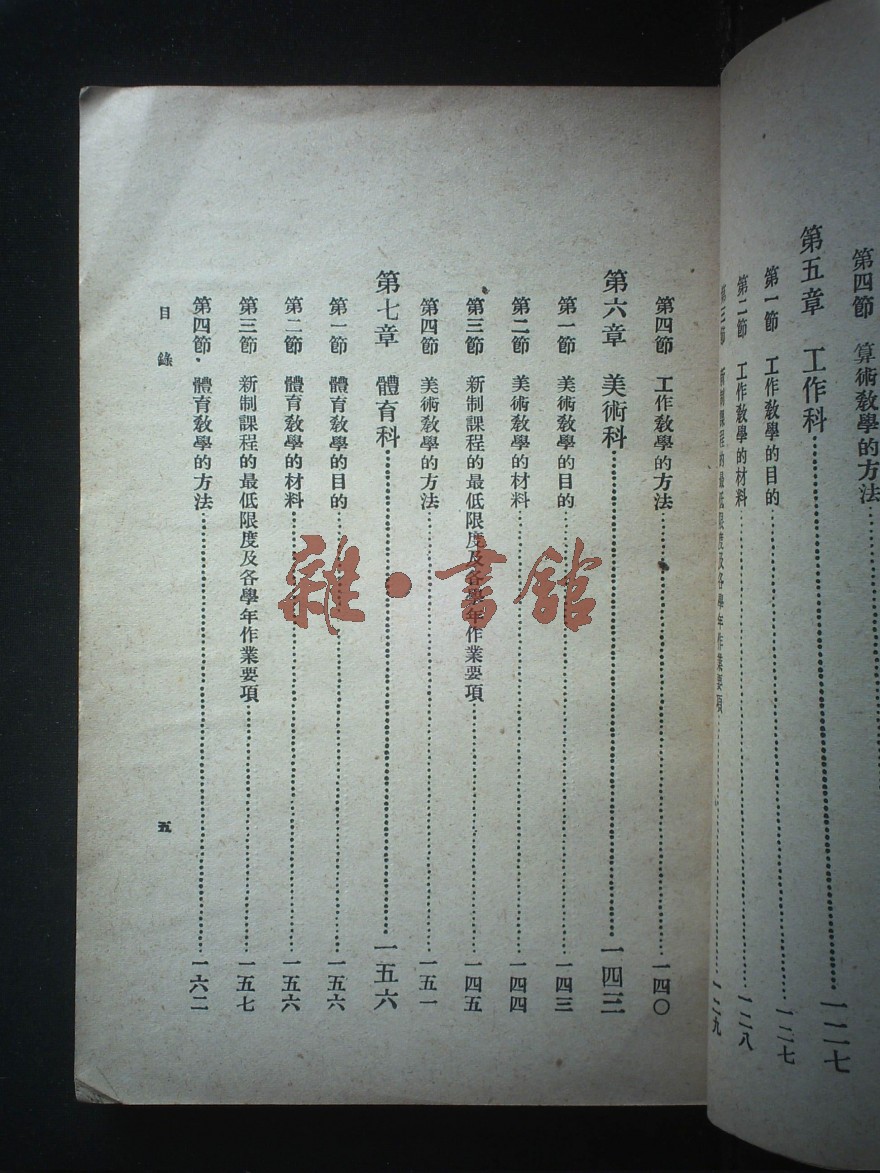 第四節　算術教學的方法
第五章　工作科……一二七
第一節　工作教學的目的……一二七
第二節　工作教學的材料……一二八
第三節　新制課程的最低限度及各學年作業要項……一二九
第四節　工作教學的方法……一四〇
第六章　美術科……一四三
第一節　美術教學的目的……一四三
第二節　美術教學的材料……一四四
第三節　新制課程的最低限度及各學年作業要項……一四五
第四節　美術教學的方法……一五一
第七章　體育科……一五六
第一節　體育教學的目的……一五六
第二節　體育教學的材料……一五六
第三節　新制課程的最低限度及各學年作業要項……一五七
第四節　體育教學的方法……一六二
目錄　五
雜·書館